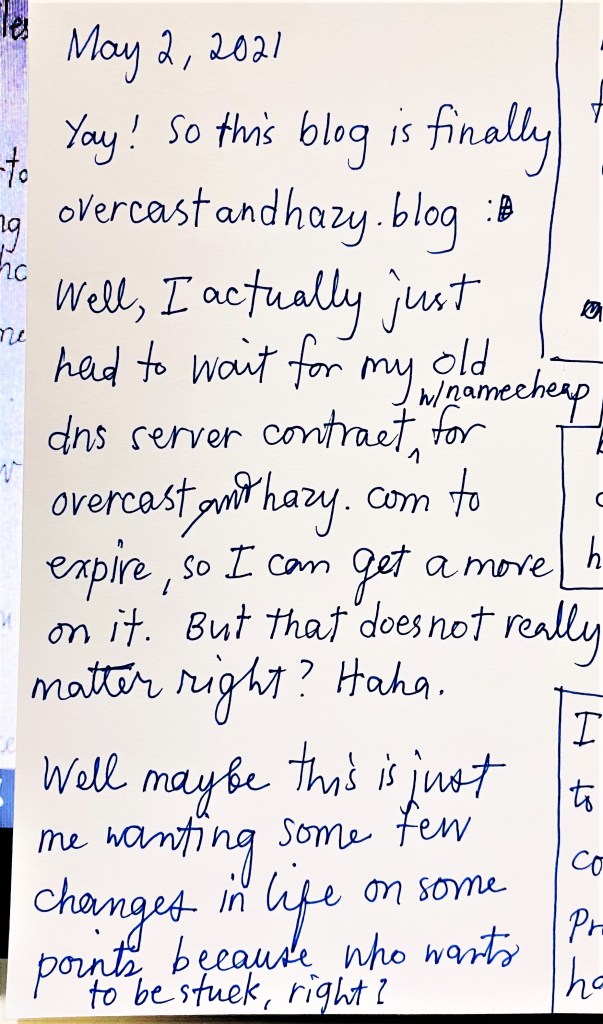 May 2, 2021
Yay! So this blog is finally
overcastandhazy.blog :D
Well, I actually just
had to wait for my old
w/namecheap
dns server contract, for
overcast and hazy. com to
expire, so I can get a more
on it. But that does not really
matter right? Haha.
Well maybe this is just
me wanting some few
changes in life on some
points because who wants
to be stuck, right?
I
to
co
Pr
ha